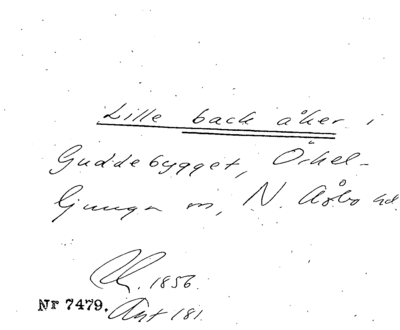 Lille back åker i
Guddebygget, Örkel-
ljunga sn, N. Åsbo hd.
1856.
Nr 7479. Akt 181.